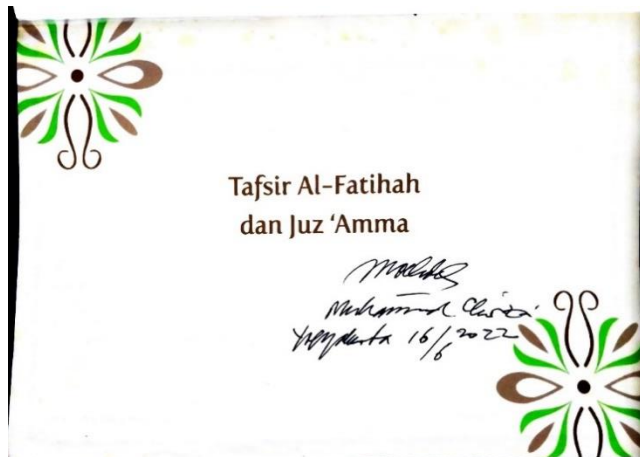 Tafsir Al-Fatihah
dan Juz ‘Amma
Muhammad
Yogyakarta 16/6 2022